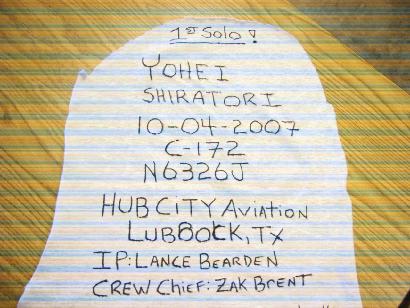 1st Solo!
YOHEI
SHIRATORI
10-04-2007
C-172
N6326J
HUB CITY Aviation
LUBBOCK, TX
IP: LANCE BEARDEN
CREW CHIEF: ZAK BRENT